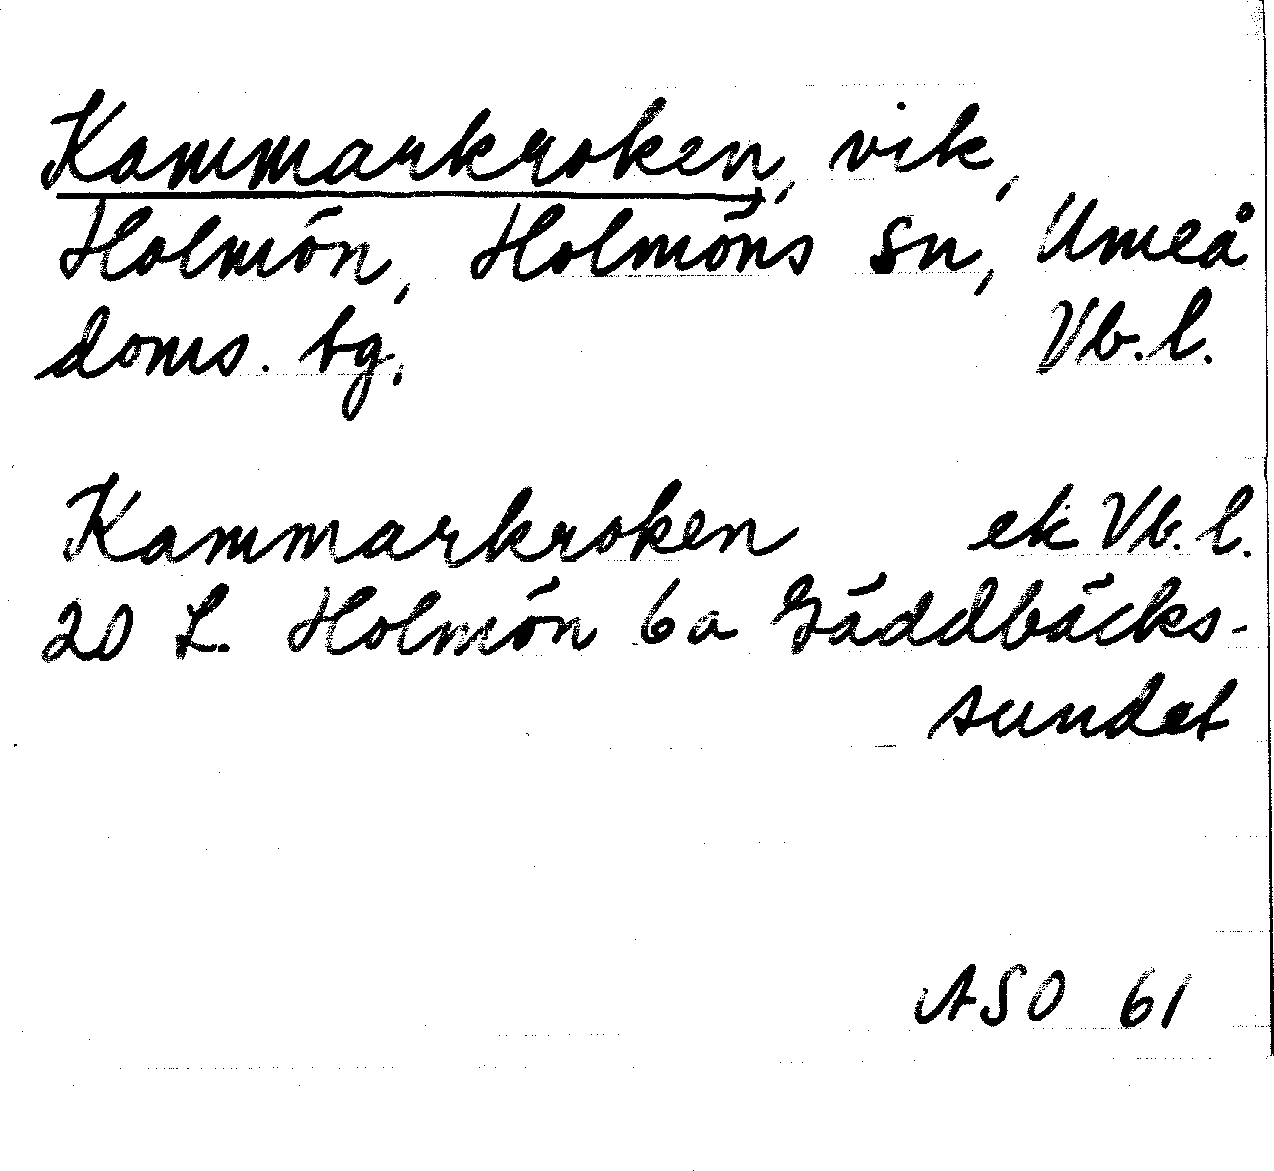 Kammarkroken, vik,
Holmön, Holmöns sn, Umeå
doms. bg, Vb. l.
Kammarkroken ek Vb. l.
20 L. Holmön 6a Gäddbäcks-
sundet
ASO 61